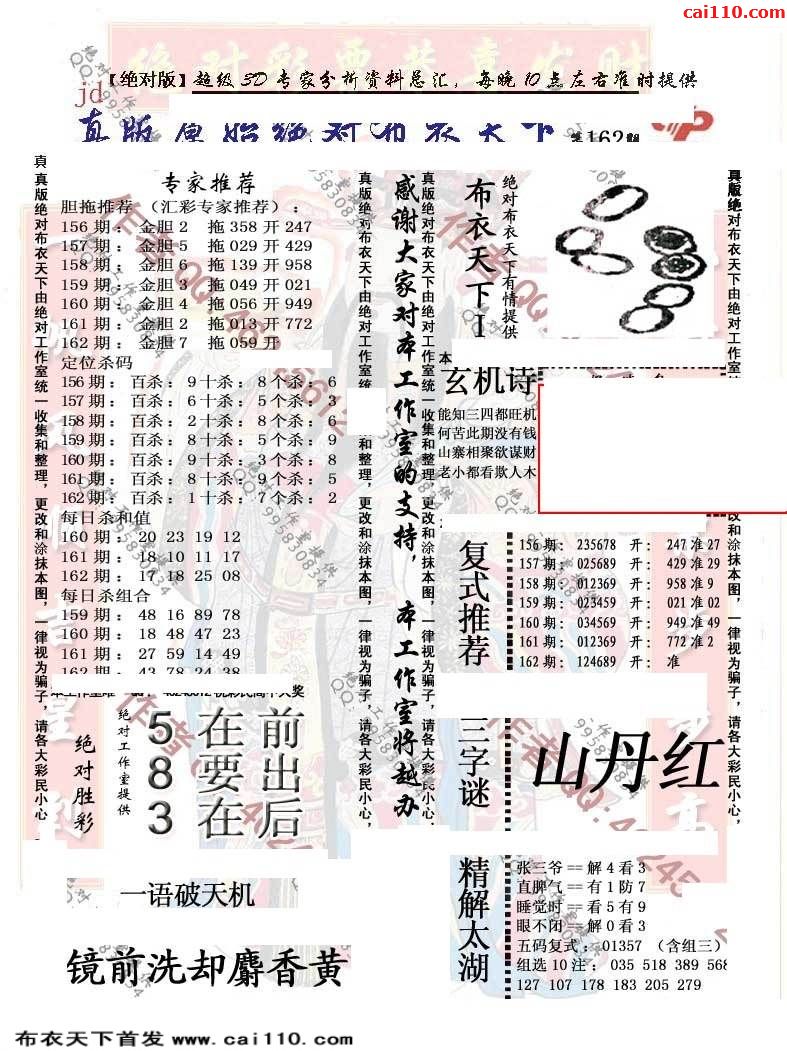 cai110.com
【绝对版】超级3D专家分析资料总汇，每晚10点左右准时提供
jd
真版原始绝对布衣天下 第162期
真版绝对布衣天下由绝对工作室统一收集和整理，更改和涂抹本图，一律视为骗子，请各大彩民小心，
专家推荐
胆拖推荐 （汇彩专家推荐）：
156期：金胆2 拖358开247
157期：金胆5 拖029开429
158期：金胆6 拖139开958
159期：金胆3 拖049开021
160期：金胆4 拖056开949
161期：金胆2 拖013开772
162期：金胆7 拖059开
定位杀码
156期：百杀：9十杀：8个杀：6
157期：百杀：6十杀：5个杀：3
158期：百杀：2十杀：8个杀：6
159期：百杀：8十杀：5个杀：9
160期：百杀：9十杀：3个杀：8
161期：百杀：8十杀：9个杀：5
162期：百杀：1十杀：7个杀：2
每日杀和值
160期：20 23 19 12
161期：18 10 11 17
162期：17 18 25 08
每日杀组合
159期：48 16 89 78
160期：18 48 47 23
161期：27 59 14 49
162期：43 78 24 38
绝对胜彩
绝对工作室提供
5 在 前
8 要 出
3 在 后
一语破天机
镜前洗却麝香黄
感谢大家对本工作室的支持，本工作室将越办
真版绝对布衣天下由绝对工作室统
和整理，更改和涂抹本图，一律视为骗子，请各大彩民小心，
真版绝对布衣天下由绝对工作室统一收集和整理，更改和涂抹本图，一律视为骗子，请各大彩民小心，
布衣天下I
绝对布衣天下有情提供
本
玄机诗
能知三四都旺机
何苦此期没有钱
山寨相聚欲谋财
老小都看欺人木
复式推荐
156期： 235678 开： 247准27
157期： 025689 开： 429准29
158期： 012369 开： 958准9
159期： 023459 开： 021准02
160期： 034569 开： 949准49
161期： 012369 开： 772准2
162期： 124689 开： 准
三字谜
山丹红
精解太湖
张三爷==解4看3
直脾气==有1防7
睡觉时==看5有9
眼不闭==解0看3
五码复式：01357 （含组三）
组选10注：035 518 389 568
127 107 178 183 205 279
真版绝对布衣天下由绝对工作室统
改和涂抹本图，一律视为骗子，请各大彩民小心，
布衣天下首发 www.cai110.com